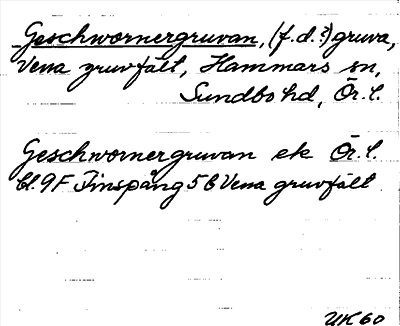 Geschwornergruvan, (f.d.?) gruva,
Vena gruvfält, Hammars sn,
Sundbo hd, Ör. l.
Geschwornergruvan ek Ör. l.
bl. 9F Finspång 5b Vena gruvfält
UK 60